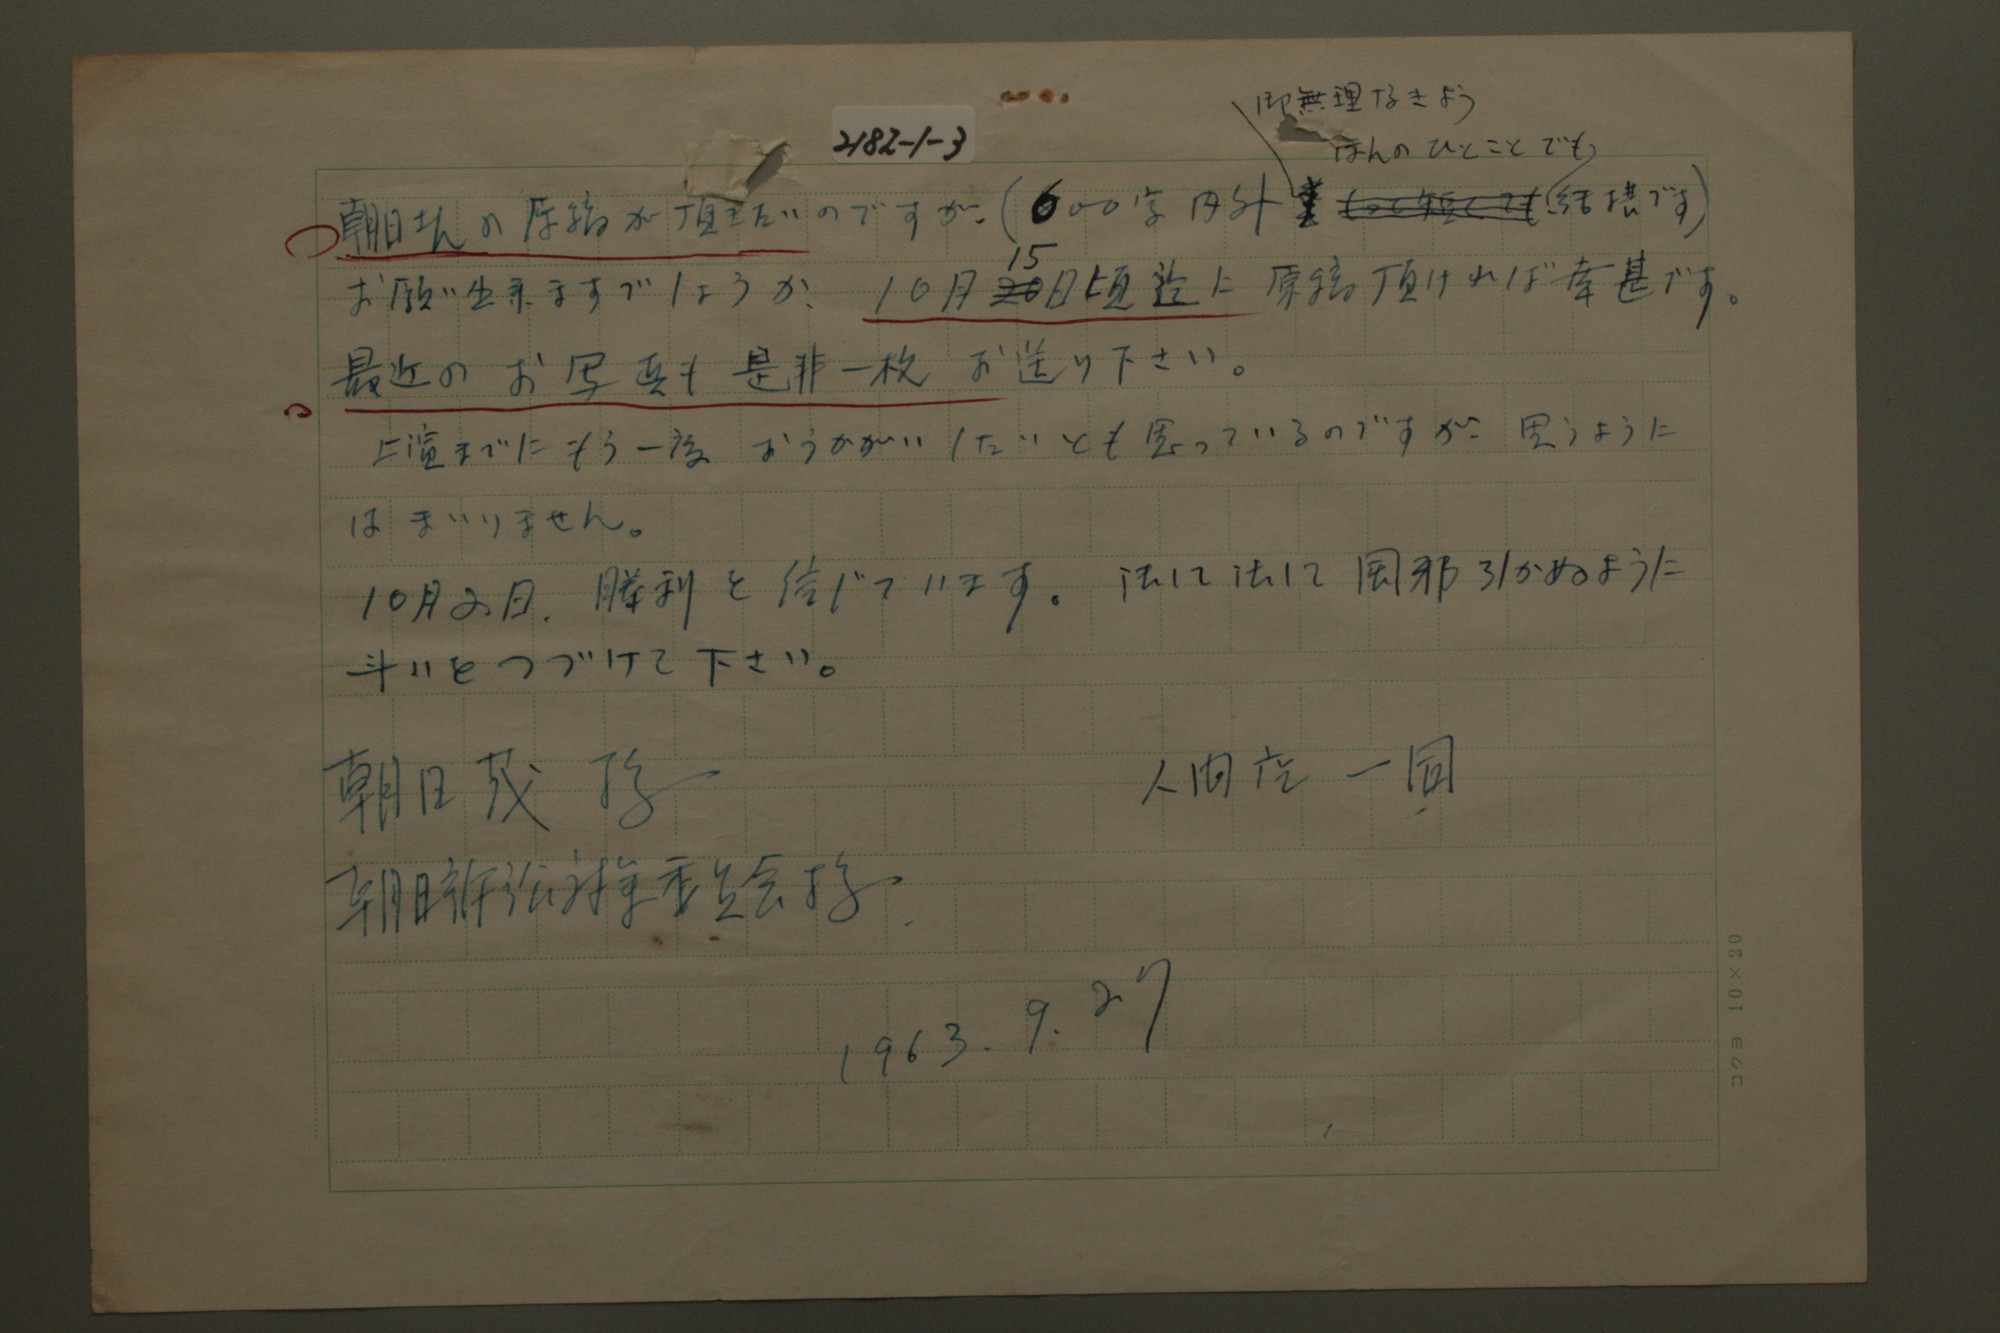 2182-1-3
御無理なきよう
ほんのひとことでも
朝日さんの原稿が頂きたいのですが、(600字内外 もっと短くても 結構です)
お願い出来ますでしょうか、10月15日頃迄に原稿頂ければ幸甚です。
最近のお写真も是非一枚お送り下さい。
上演までにもう一度おうかがいしたいとも思っているのですが、思うように
はまいりません。
10月20日、勝利を信じています。決して決して風邪引かぬように
斗いをつづけて下さい。
朝日茂様
人間座一同
朝日訴訟対策委員会様
1963.9.27
コクヨ 10×20